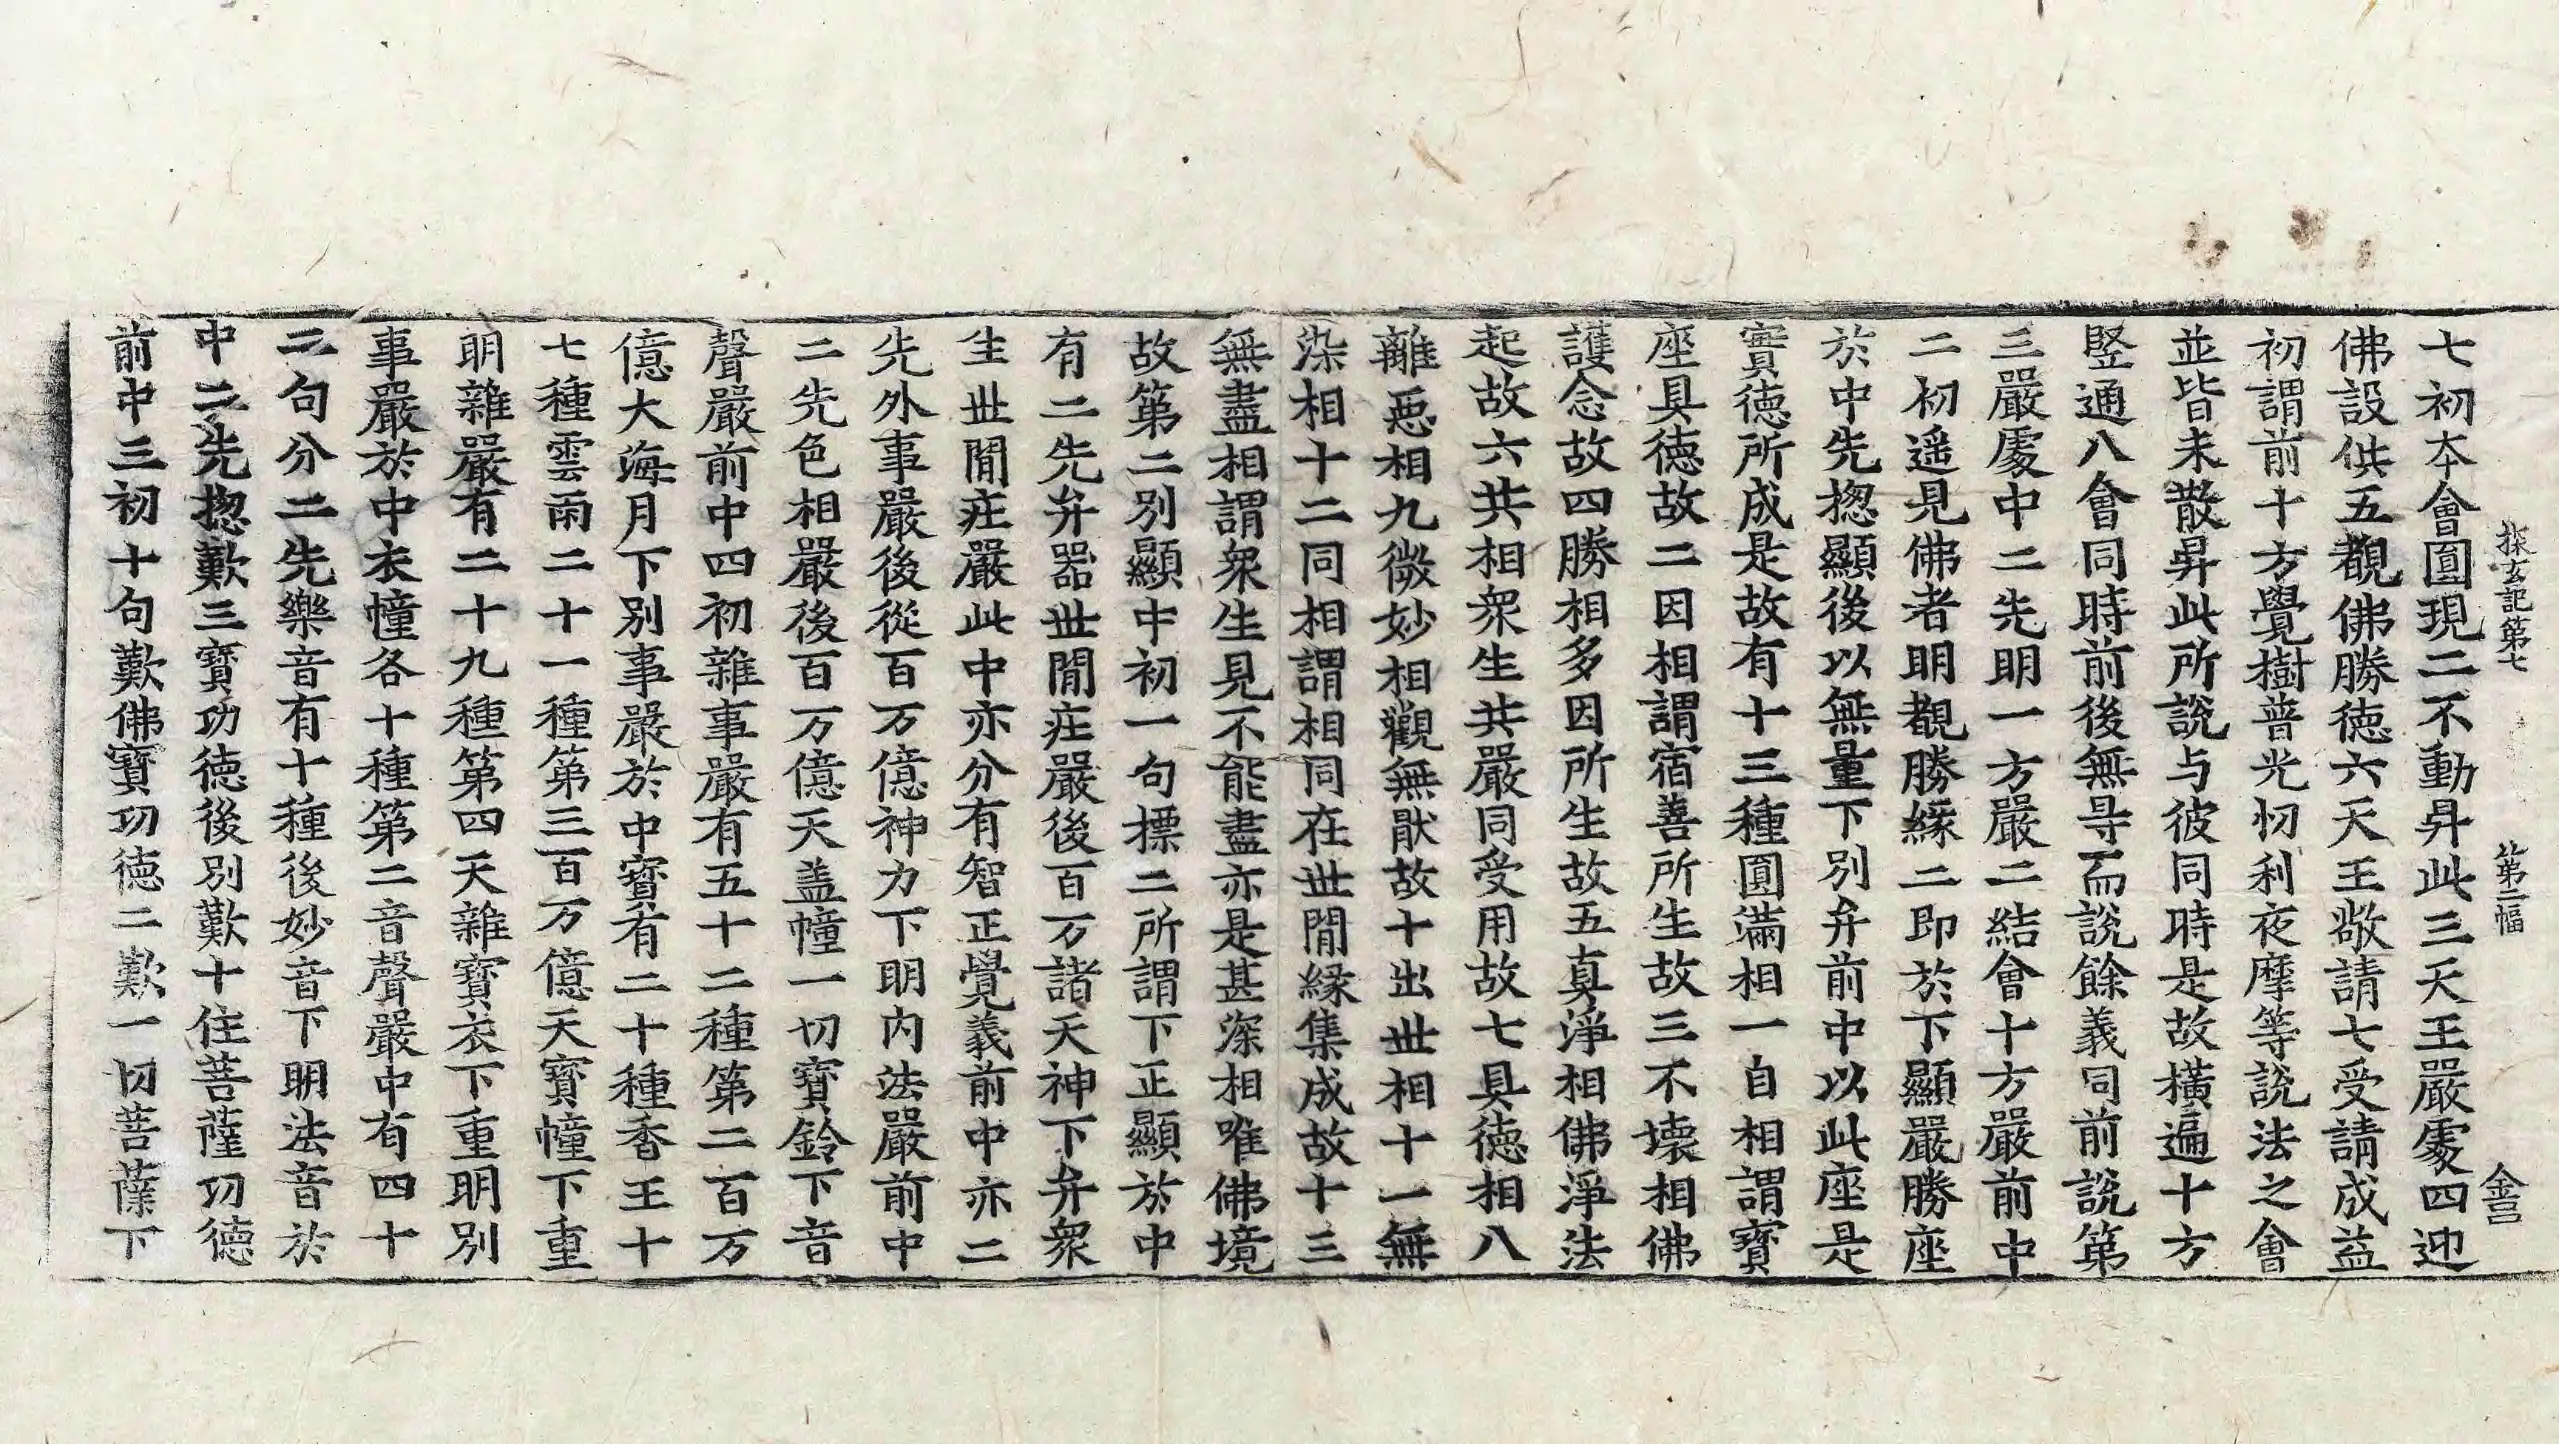 探玄記第七 第二幅 金㠯
七初夲會圓現二不動昇此三天王嚴處四迎
佛設供五覩佛勝德六天王敬請七受請成益
初謂前十方覺樹普光忉利夜摩等說法之會
並皆未散昇此所說与彼同時是故橫遍十方
竪通八會同時前後無㝵而說餘義同前說第
三嚴處中二先明一方嚴二結會十方嚴前中
二初遥見佛者明覩勝緣二即於下顯嚴勝座
於中先揔顯後以無量下別弁前中以此座是
實德所成是故有十三種圓滿相一自相謂寶
座具德故二因相謂宿善所生故三不壞相佛
護念故四勝相多因所生故五真淨相佛淨法
起故六共相衆生共嚴同受用故七具德相八
離惡相九微妙相觀無猒故十出丗相十一無
染相十二同相謂相同在丗間緣集成故十三
無盡相謂衆生見不能盡亦是甚深相唯佛境
故第二別顯中初一句摽二所謂下正顯於中
有二先弁器丗間庄嚴後百万諸天神下弁衆
生丗間庄嚴此中亦分有智正覺義前中亦二
先外事嚴後從百万億神力下明內法嚴前中
二先色相嚴後百万億天盖幢一切寶鈴下音
聲嚴前中四初雜事嚴有五十二種第二百万
億大海月下別事嚴於中寶有二十種香王十
七種雲雨二十一種第三百万億天寶幢下重
明雜嚴有二十九種第四天雜寶衣下重明別
事嚴於中衣幢各十種第二音聲嚴中有四十
二句分二先樂音有十種後妙音下明法音於
中二先揔歎三寶功德後別歎十住菩薩功德
前中三初十句歎佛寶功德二歎一切菩薩下